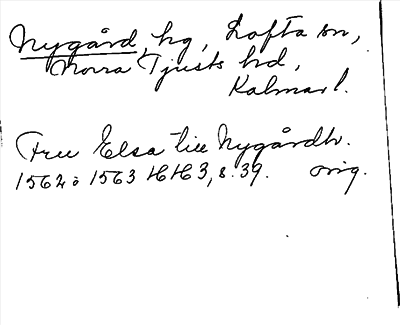 Nygård, hg, Lofta sn,
Norra Tjusts hd,
Kalmar l.
Fru Elsa till Nygårdh.
1562 o 1563 HH 3, s. 39. orig.